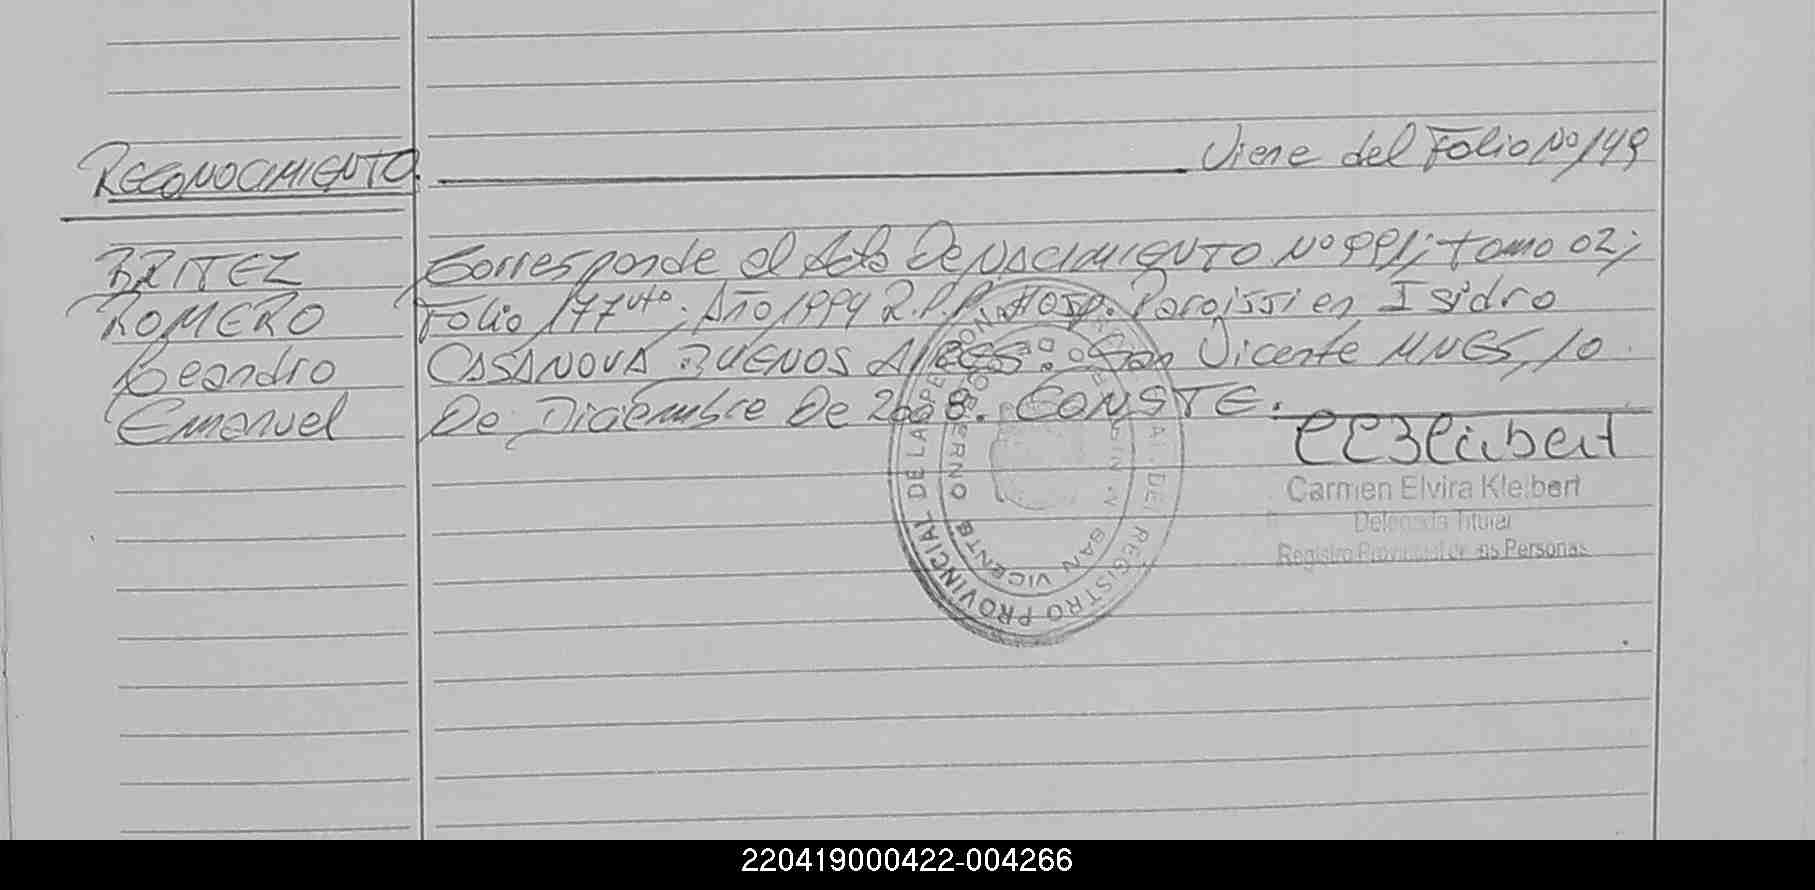 RECONOCIMIENTO. Viene del Folio Nº 149
BRITEZ Corresponde al Acta De NACIMIENTO Nº 991; tomo 02;
ROMERO Folio 177 vto; Año 1994 R.P.P. Hosp. Paroissien Isidro
Leandro CASANOVA BUENOS AIRES: San Vicente MNES, 10
Emanuel De Diciembre De 2008. CONSTE.
Carmen Elvira Kleibert
Delegada Titular
Registro Provincial de las Personas
REGISTRO PROVINCIAL DE LAS PERSONAS
SAN VICENTE
220419000422-004266